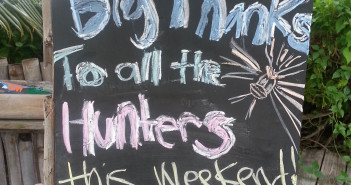 Big Thanks
To all the
Hunters
this Weekend!